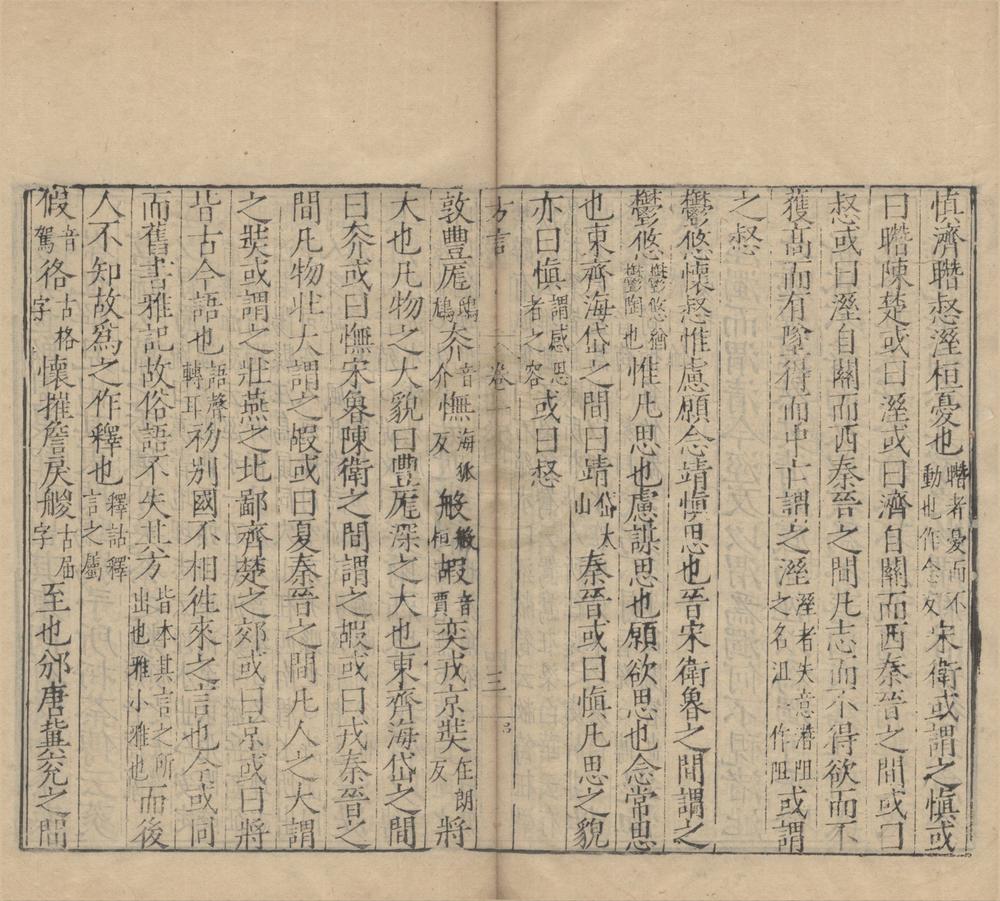 慎濟㬱惄溼桓憂也㬱者憂而不動也作念反宋衛或謂之慎或
曰㬱陳楚或曰溼或曰濟自關而西秦晉之間或曰
惄或曰溼自關而西秦晉之間凡志而不得欲而不
獲高而有墜得而中亡謂之溼溼者失意潛阻之名沮一作阻或謂
之惄
鬱悠懷惄惟慮願念靖慎思也晉宋衛魯之間謂之
鬱悠鬱悠猶鬱陶也惟凡思也慮謀思也願欲思也念常思
也東齊海岱之間曰靖岱太山秦晉或曰慎凡思之貌
亦曰慎謂感思者之容或曰惄
方言 卷一 三
敦豐厖鴟鳩夰音介憮海狐反般般桓嘏音賈奕戎京奘在朗反將
大也凡物之大貌曰豐厖深之大也東齊海岱之間
曰夰或曰憮宋魯陳衛之間謂之嘏或曰戎秦晉之
間凡物壯大謂之嘏或曰夏秦晉之間凡人之大謂
之奘或謂之壯燕之北鄙齊楚之郊或曰京或曰將
皆古今語也語聲轉耳初別國不相徃來之言也今或同
而舊書雅記故俗語不失其方皆本其言之所出也雅小雅也而後
人不知故爲之作釋也釋詁釋言之屬
假音駕佫古格字懷摧詹戾艐古届字至也邠唐冀兖之間